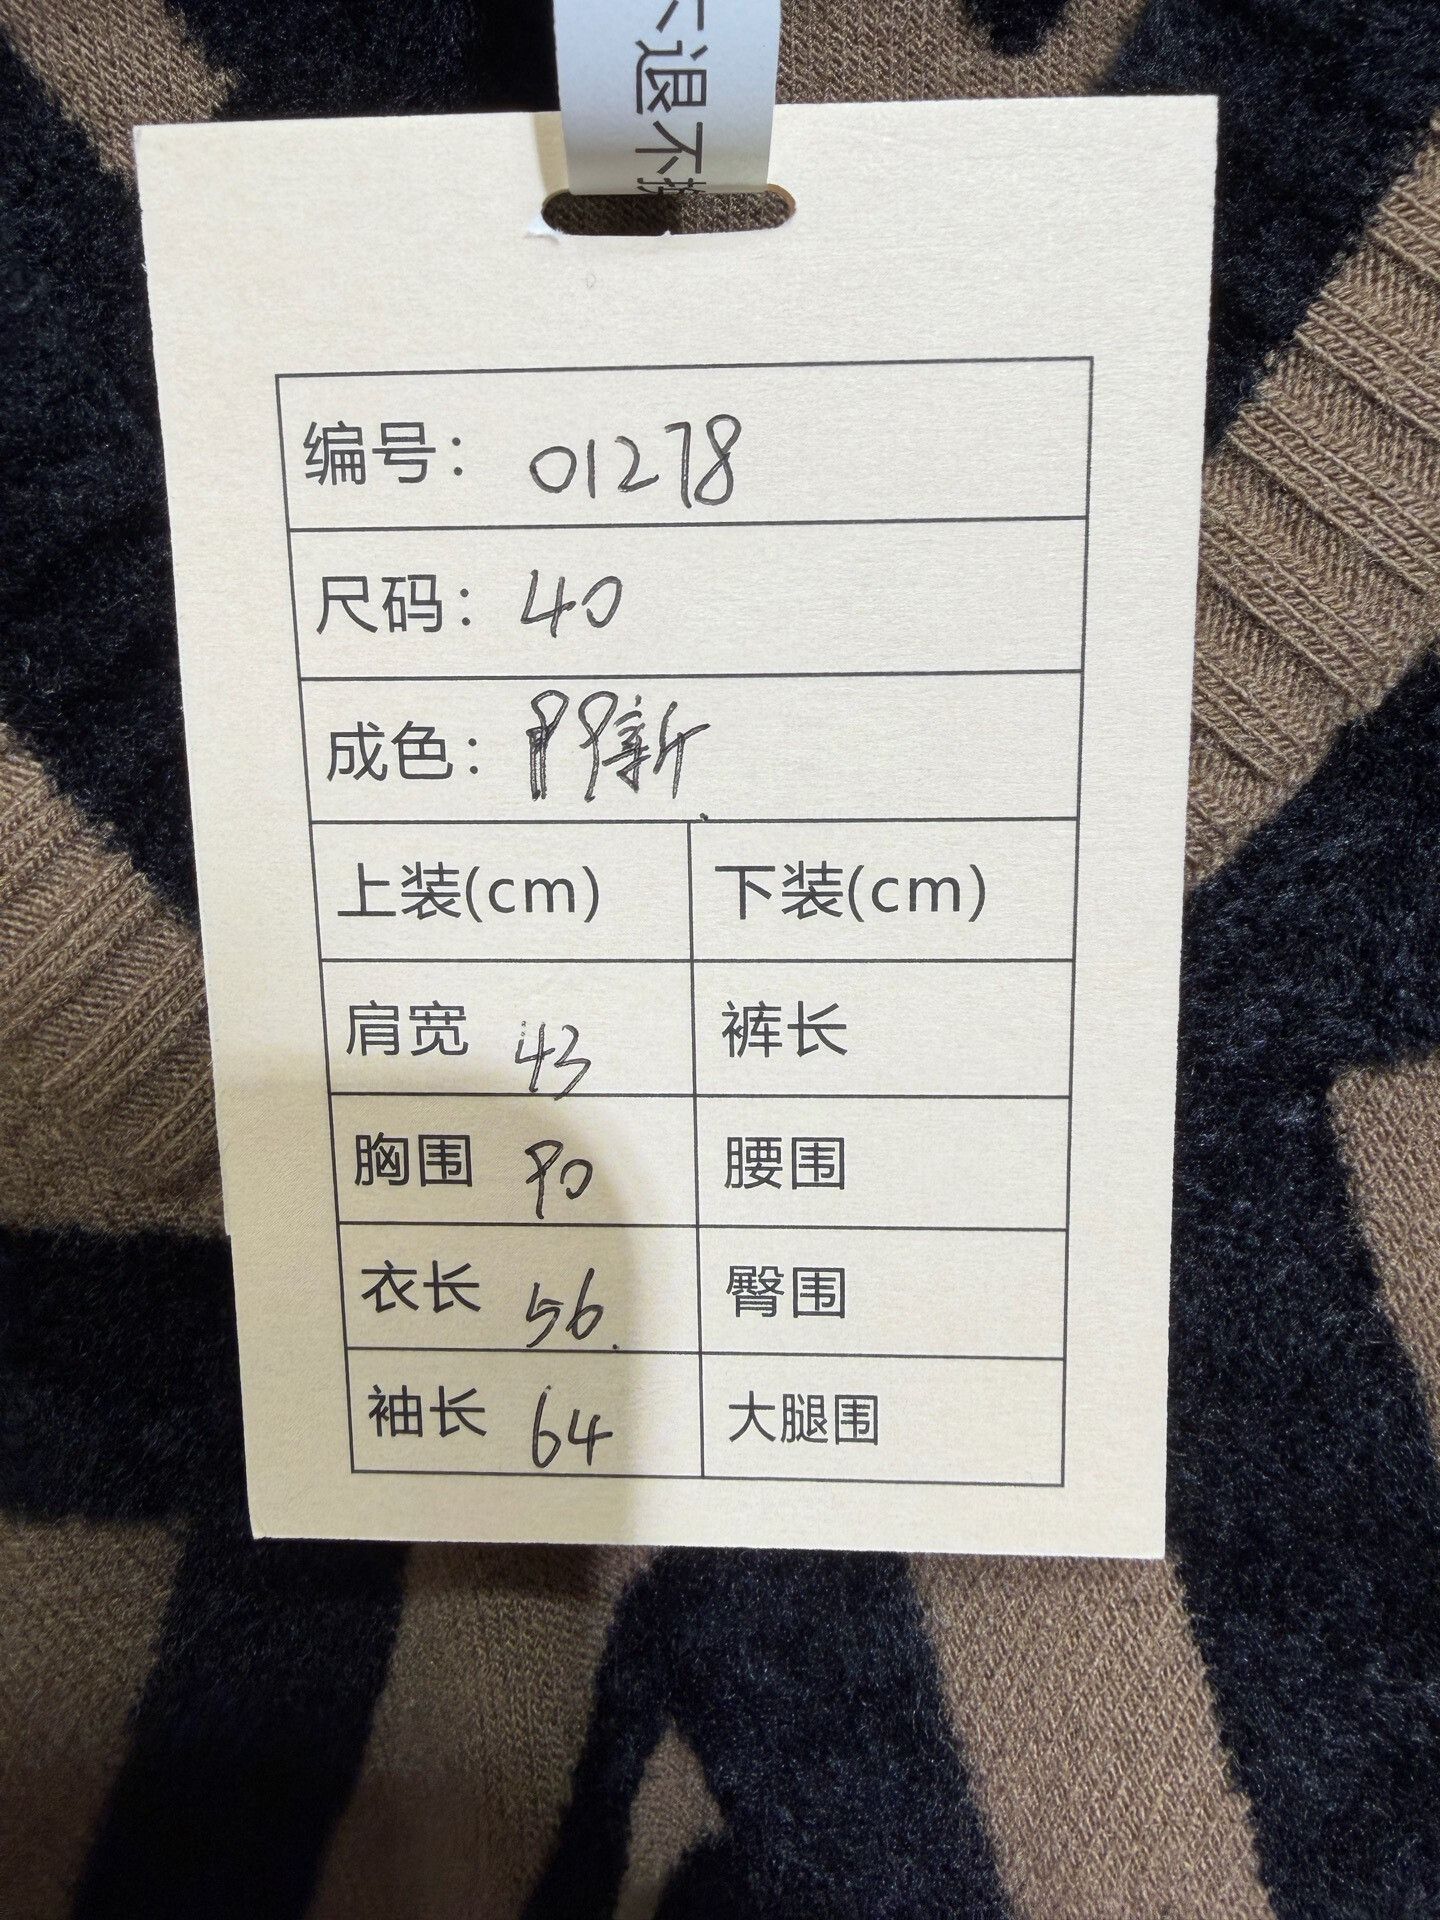 不退不换
编号：01278
尺码：40
成色：99新
上装(cm) 下装(cm)
肩宽 43 裤长
胸围 90 腰围
衣长 56 臀围
袖长 64 大腿围